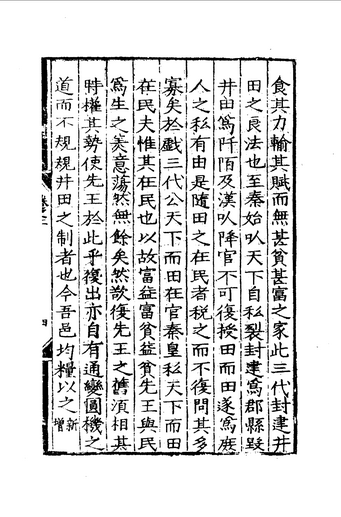 食其力輸其賦而無甚貧甚富之家此三代封建井
田之良法也至秦始以天下自私裂封建爲郡縣毀
井田爲阡陌及漢以降官不可復授田而田遂爲庶
人之私有由是隨田之在民者税之而不復問其多
寡矣於戲三代公天下而田在官秦皇私天下而田
在民夫惟其在民也以故富益富貧益貧先王與民
爲生之美意蕩然無餘矣然欲復先王之舊須相其
時權其勢使先王於此乎復出亦自有通變圓機之
道而不規規井田之制者也今吾邑均糧以之新增
卷之三
四